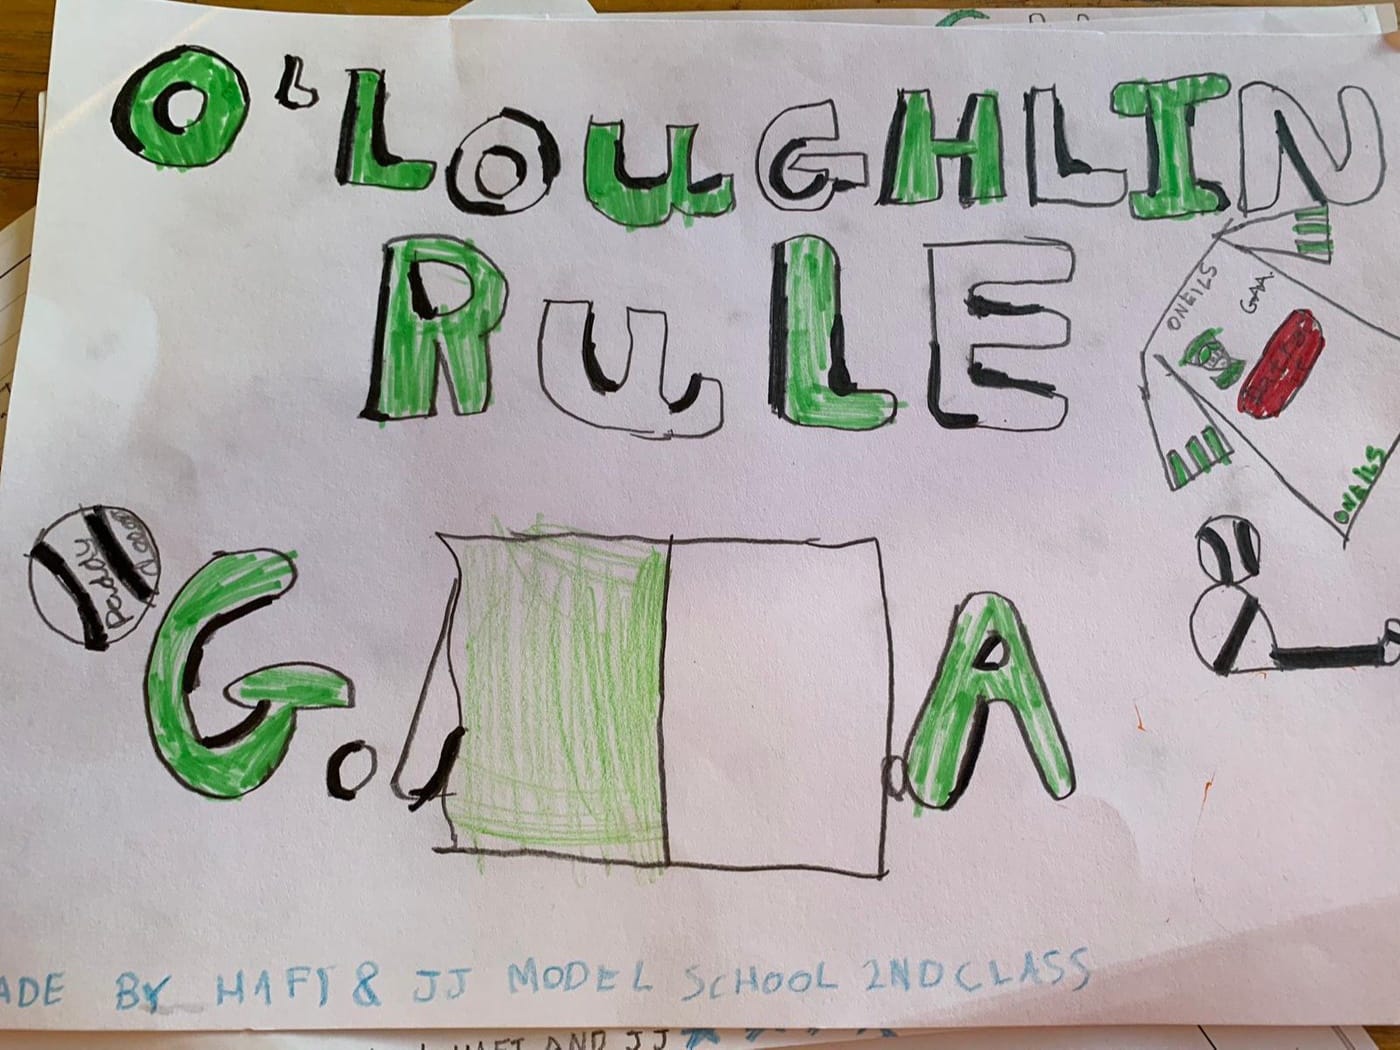 O'LOUGHLIN
RULE
ONEILS
GAA
ONEILS
Paddy
G.A.A
ADE BY HAFI & JJ MODEL SCHOOL 2ND CLASS
HAFI AND JJ